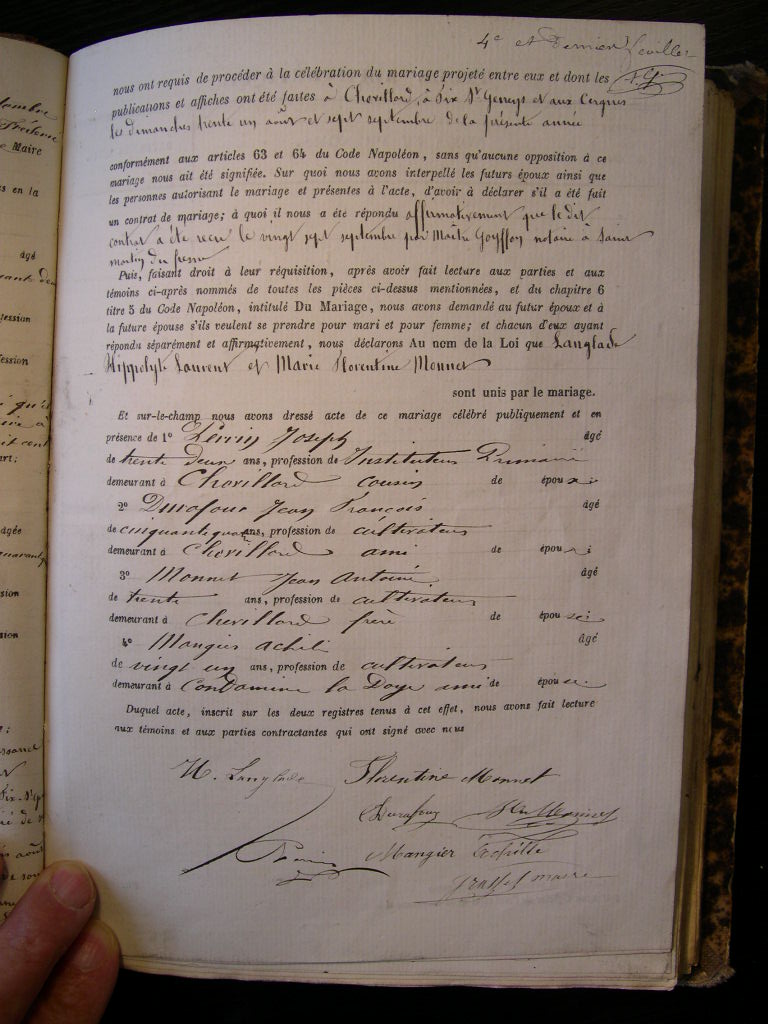 4e et Dernier feuillet
nous ont requis de procéder à la célébration du mariage projeté entre eux et dont les
publications et affiches ont été faites à Chevillard, à Six St Geneys et aux Cergues
les dimanches trente un août et sept septembre de la présente année
conformément aux articles 63 et 64 du Code Napoléon, sans qu'aucune opposition à ce
mariage nous ait été signifiée. Sur quoi nous avons interpellé les futurs époux ainsi que
les personnes autorisant le mariage et présentes à l'acte, d'avoir à déclarer s'il a été fait
un contrat de mariage; à quoi il nous a été répondu affirmativement que le dit
contrat a été recu le vingt sept septembre par Maître Gouffon notaire à Saint
martin du fresne
Puis, faisant droit à leur réquisition, après avoir fait lecture aux parties et aux
témoins ci-après nommés de toutes les pièces ci-dessus mentionnées, et du chapitre 6
titre 5 du Code Napoléon, intitulé Du Mariage, nous avons demandé au futur époux et à
la future épouse s'ils veulent se prendre pour mari et pour femme; et chacun d'eux ayant
répondu séparément et affirmativement, nous déclarons Au nom de la Loi que Langlade
Hippolyte Laurent et Marie Florentine Monnet
sont unis par le mariage.
Et sur-le-champ nous avons dressé acte de ce mariage célébré publiquement et en
présence de 1o Joseph âgé
de trente deux ans, profession de Instituteur Primaire
demeurant à Chevillard cousin de épou
2o Durafour Jean François âgé
de cinquante quatre ans, profession de cultivateur
demeurant à Chevillard ami de épou
3o Monnet Jean Antoine âgé
de trente ans, profession de cultivateur
demeurant à Chevillard frère de épou se
4o Mangier Achile âgé
de vingt un ans, profession de cultivateur
demeurant à Condamine la Doye ami de épou se
Duquel acte, inscrit sur les deux registres tenus à cet effet, nous avons fait lecture
aux témoins et aux parties contractantes qui ont signé avec nous
H. Langlade Florentine Monnet
Durafour Monnet
Mangier Achille
maire